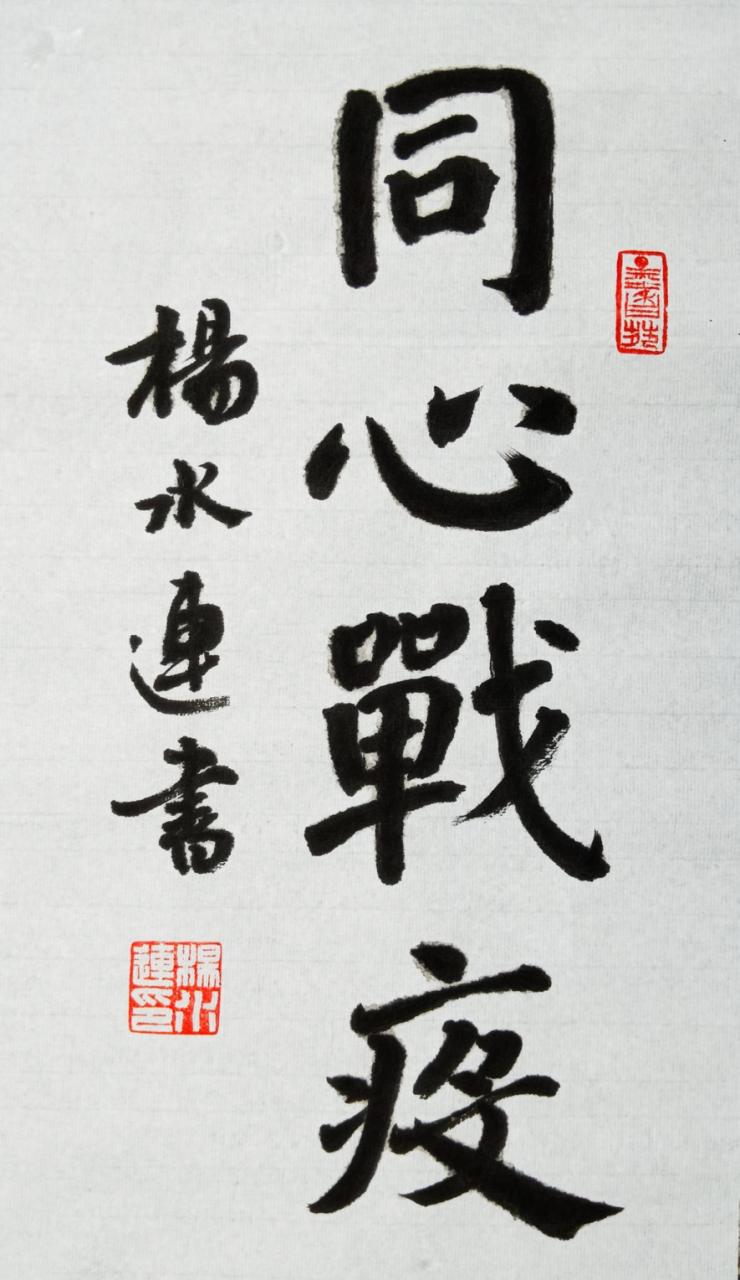 同心戰疫
楊水連書
楊水連印